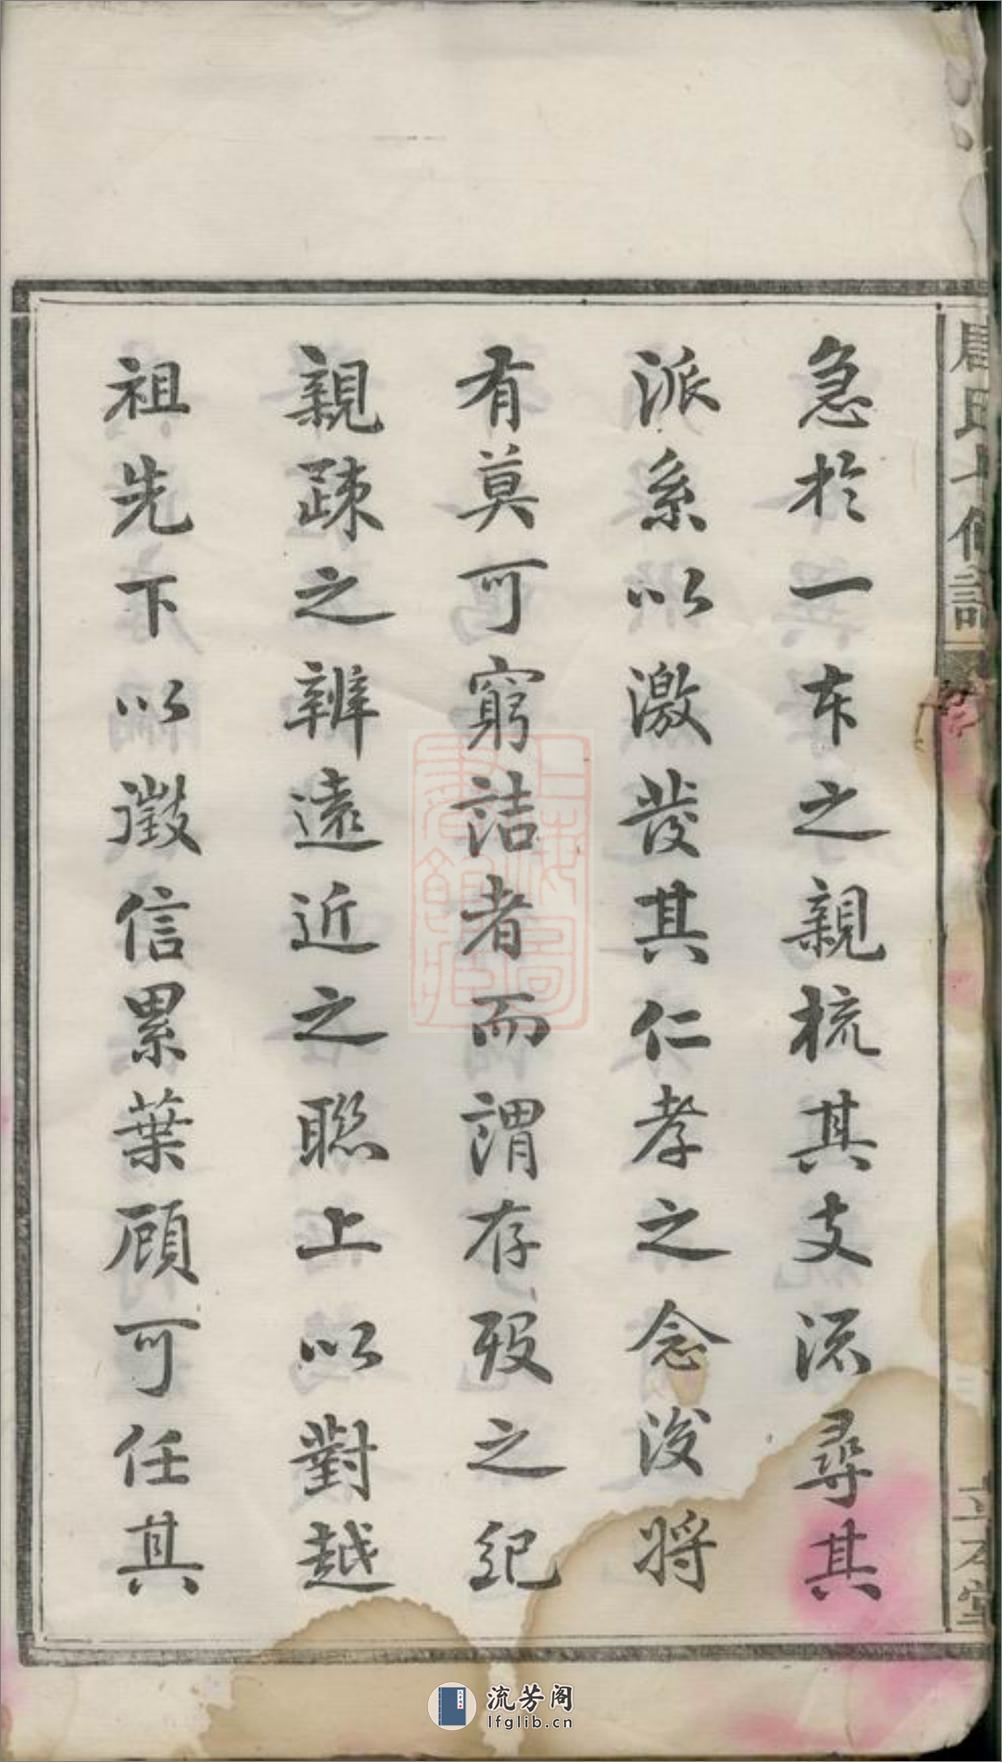 急於一本之親梳其支流尋其
派系以激發其仁孝之念浚將
有莫可窮詰者而謂存殁之紀
親疎之辨遠近之聯上以對越
祖先下以徵信累葉顧可任其
氏十修譜
立本堂
上海圖書館藏
流芳阁
lfglib.cn